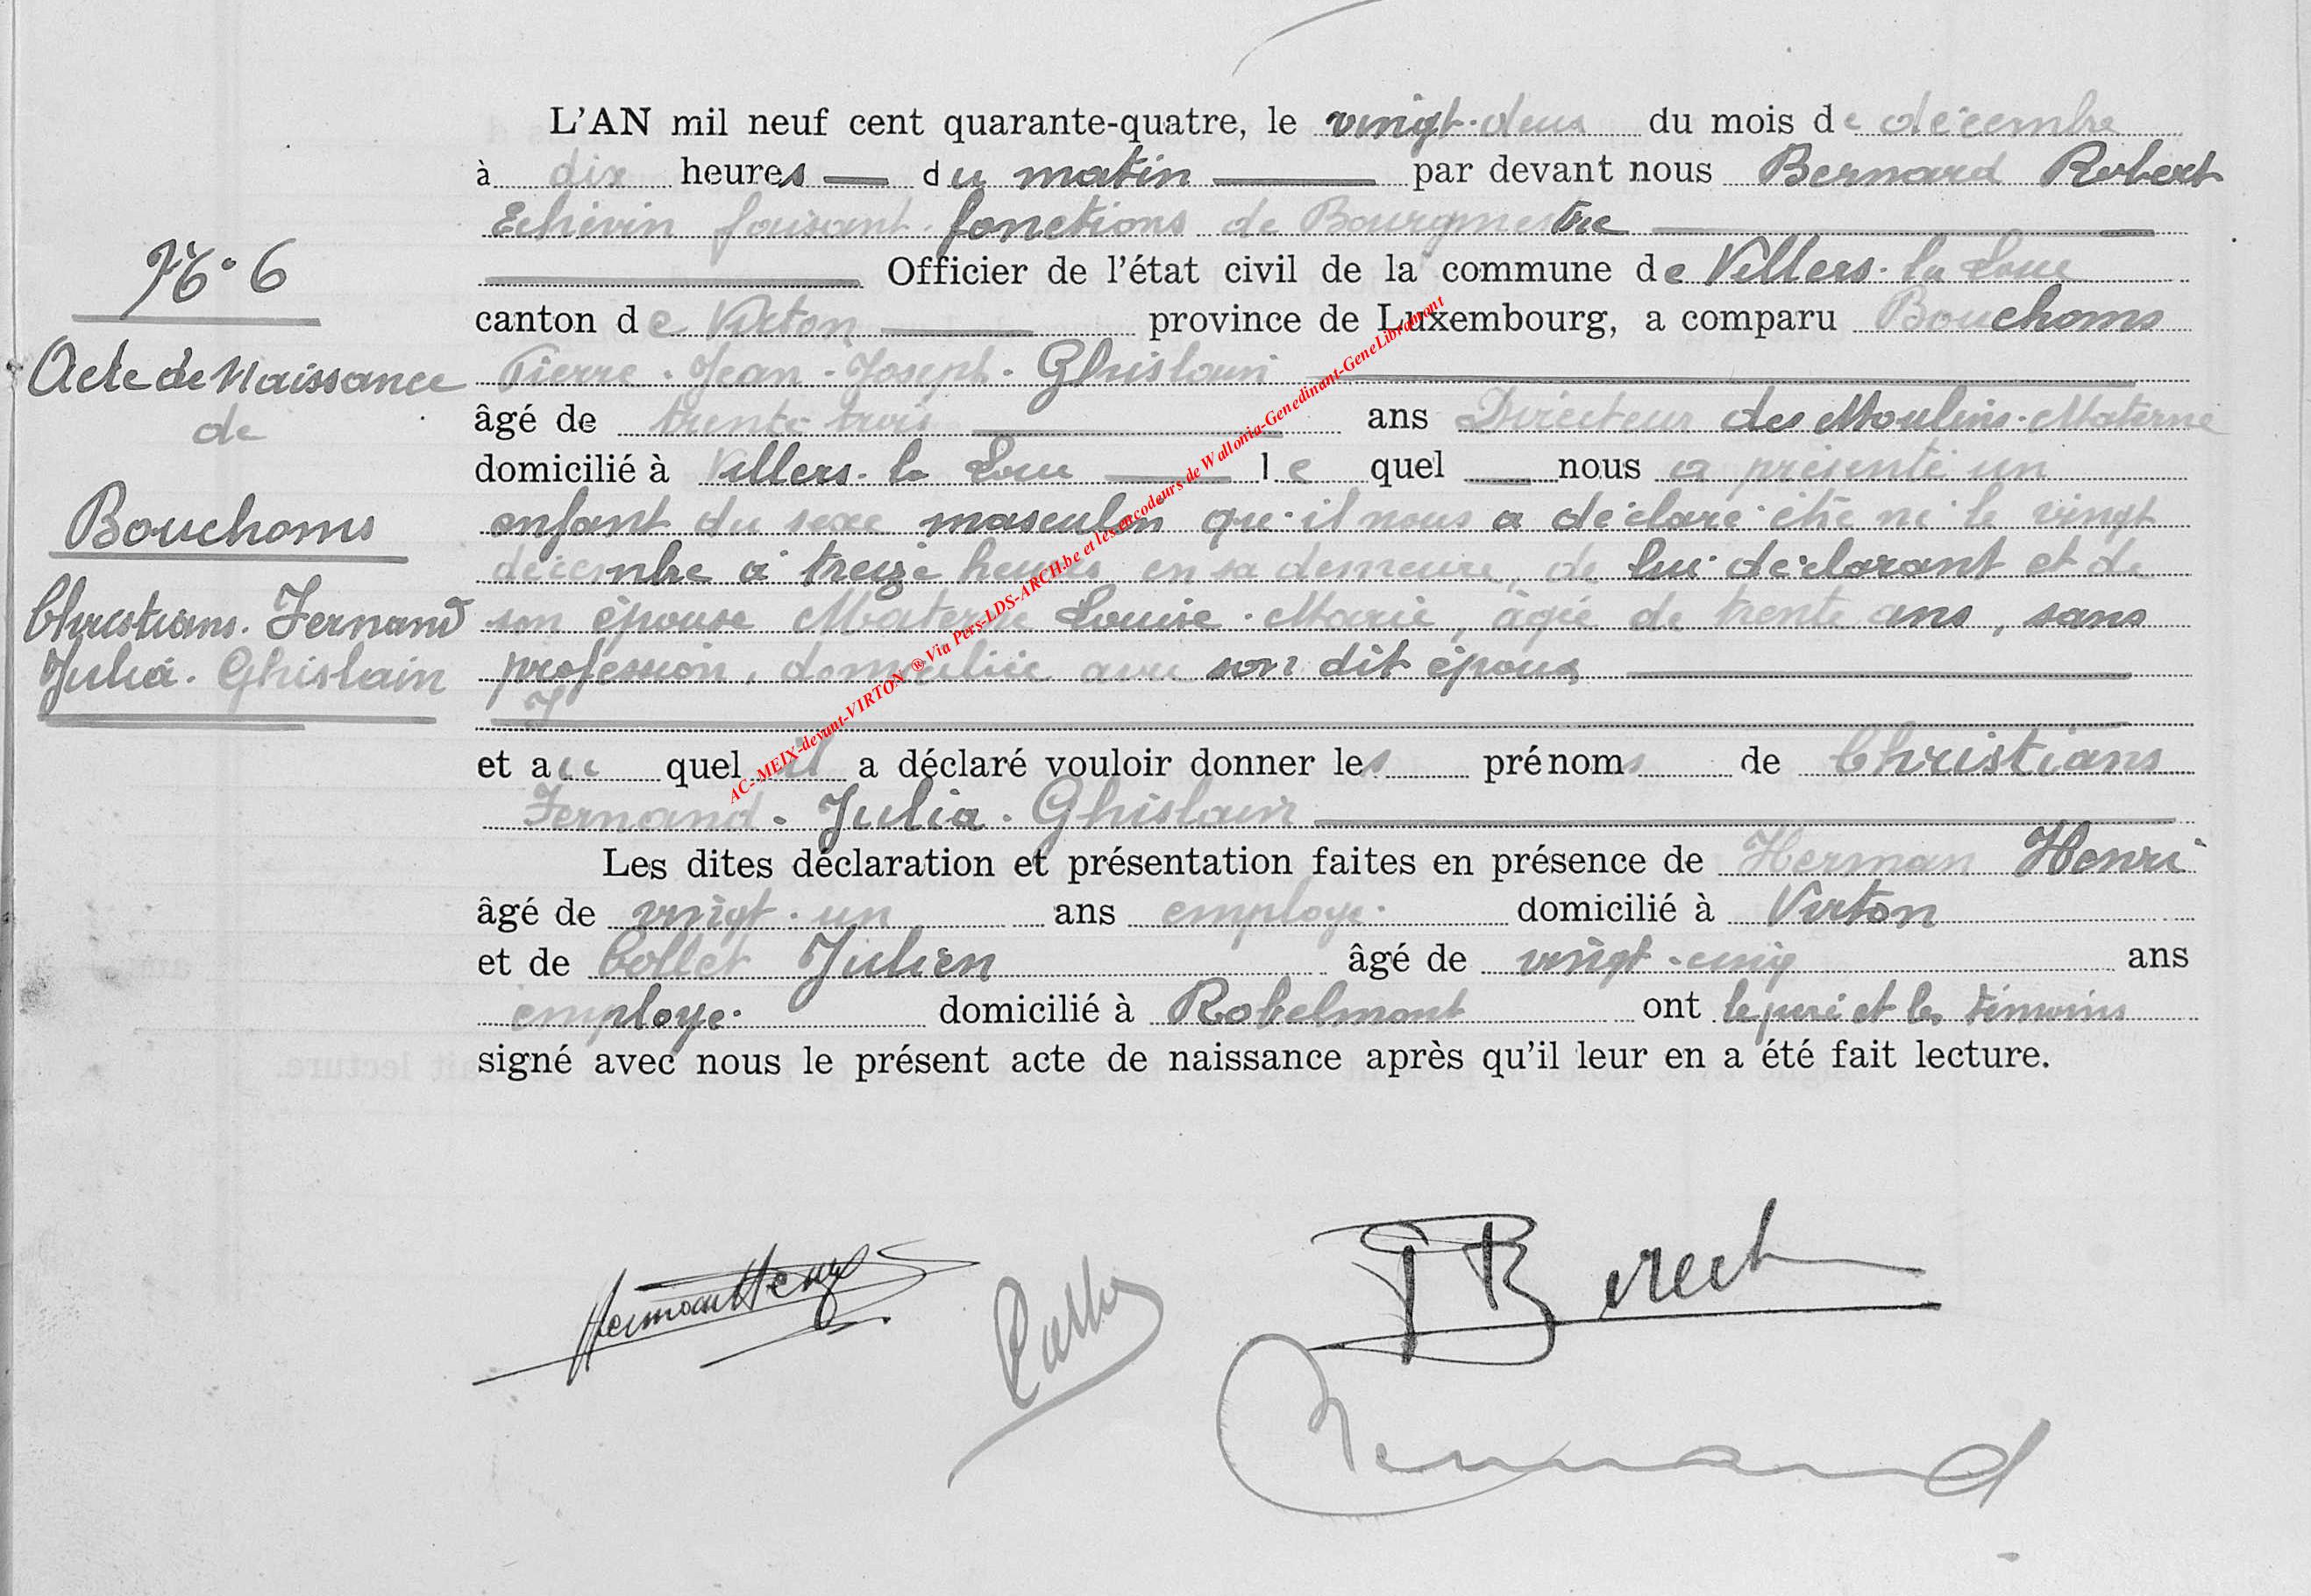 L'AN mil neuf cent quarante-quatre, le vingt-deux du mois de décembre
à dix heures du matin par devant nous Bernard Robert
Echevin faisant fonctions de Bourgmestre
Officier de l'état civil de la commune de Villers-la Loue
canton de Virton province de Luxembourg, a comparu Bouchoms
Pierre-Jean-Joseph-Ghislain
âgé de trente-trois ans Directeur des Moulins-Materne
domicilié à Villers-la Loue lequel nous a présenté un
enfant du sexe masculin qu'il nous a déclaré être né le vingt
décembre à treize heures en sa demeure, de lui déclarant et de
son épouse Materne Louise-Marie, âgée de trente ans, sans
profession, domiciliée avec son dit époux
et auquel il a déclaré vouloir donner les prénoms de Christians
Fernand-Julia-Ghislain
Les dites déclaration et présentation faites en présence de Herman Henri
âgé de vingt-un ans employé domicilié à Virton
et de Collet Julien âgé de vingt-cinq ans
employé domicilié à Robelmont ont le père et les témoins
signé avec nous le présent acte de naissance après qu'il leur en a été fait lecture.
N° 6
Acte de Naissance
de
Bouchoms
Christians-Fernand
Julia-Ghislain
AC-MEIX-devant-VIRTON ® Via Pers-LDS-ARCH.be et les encodeurs de Wallonia-Genedinant-GeneLibramont
Herman Henri